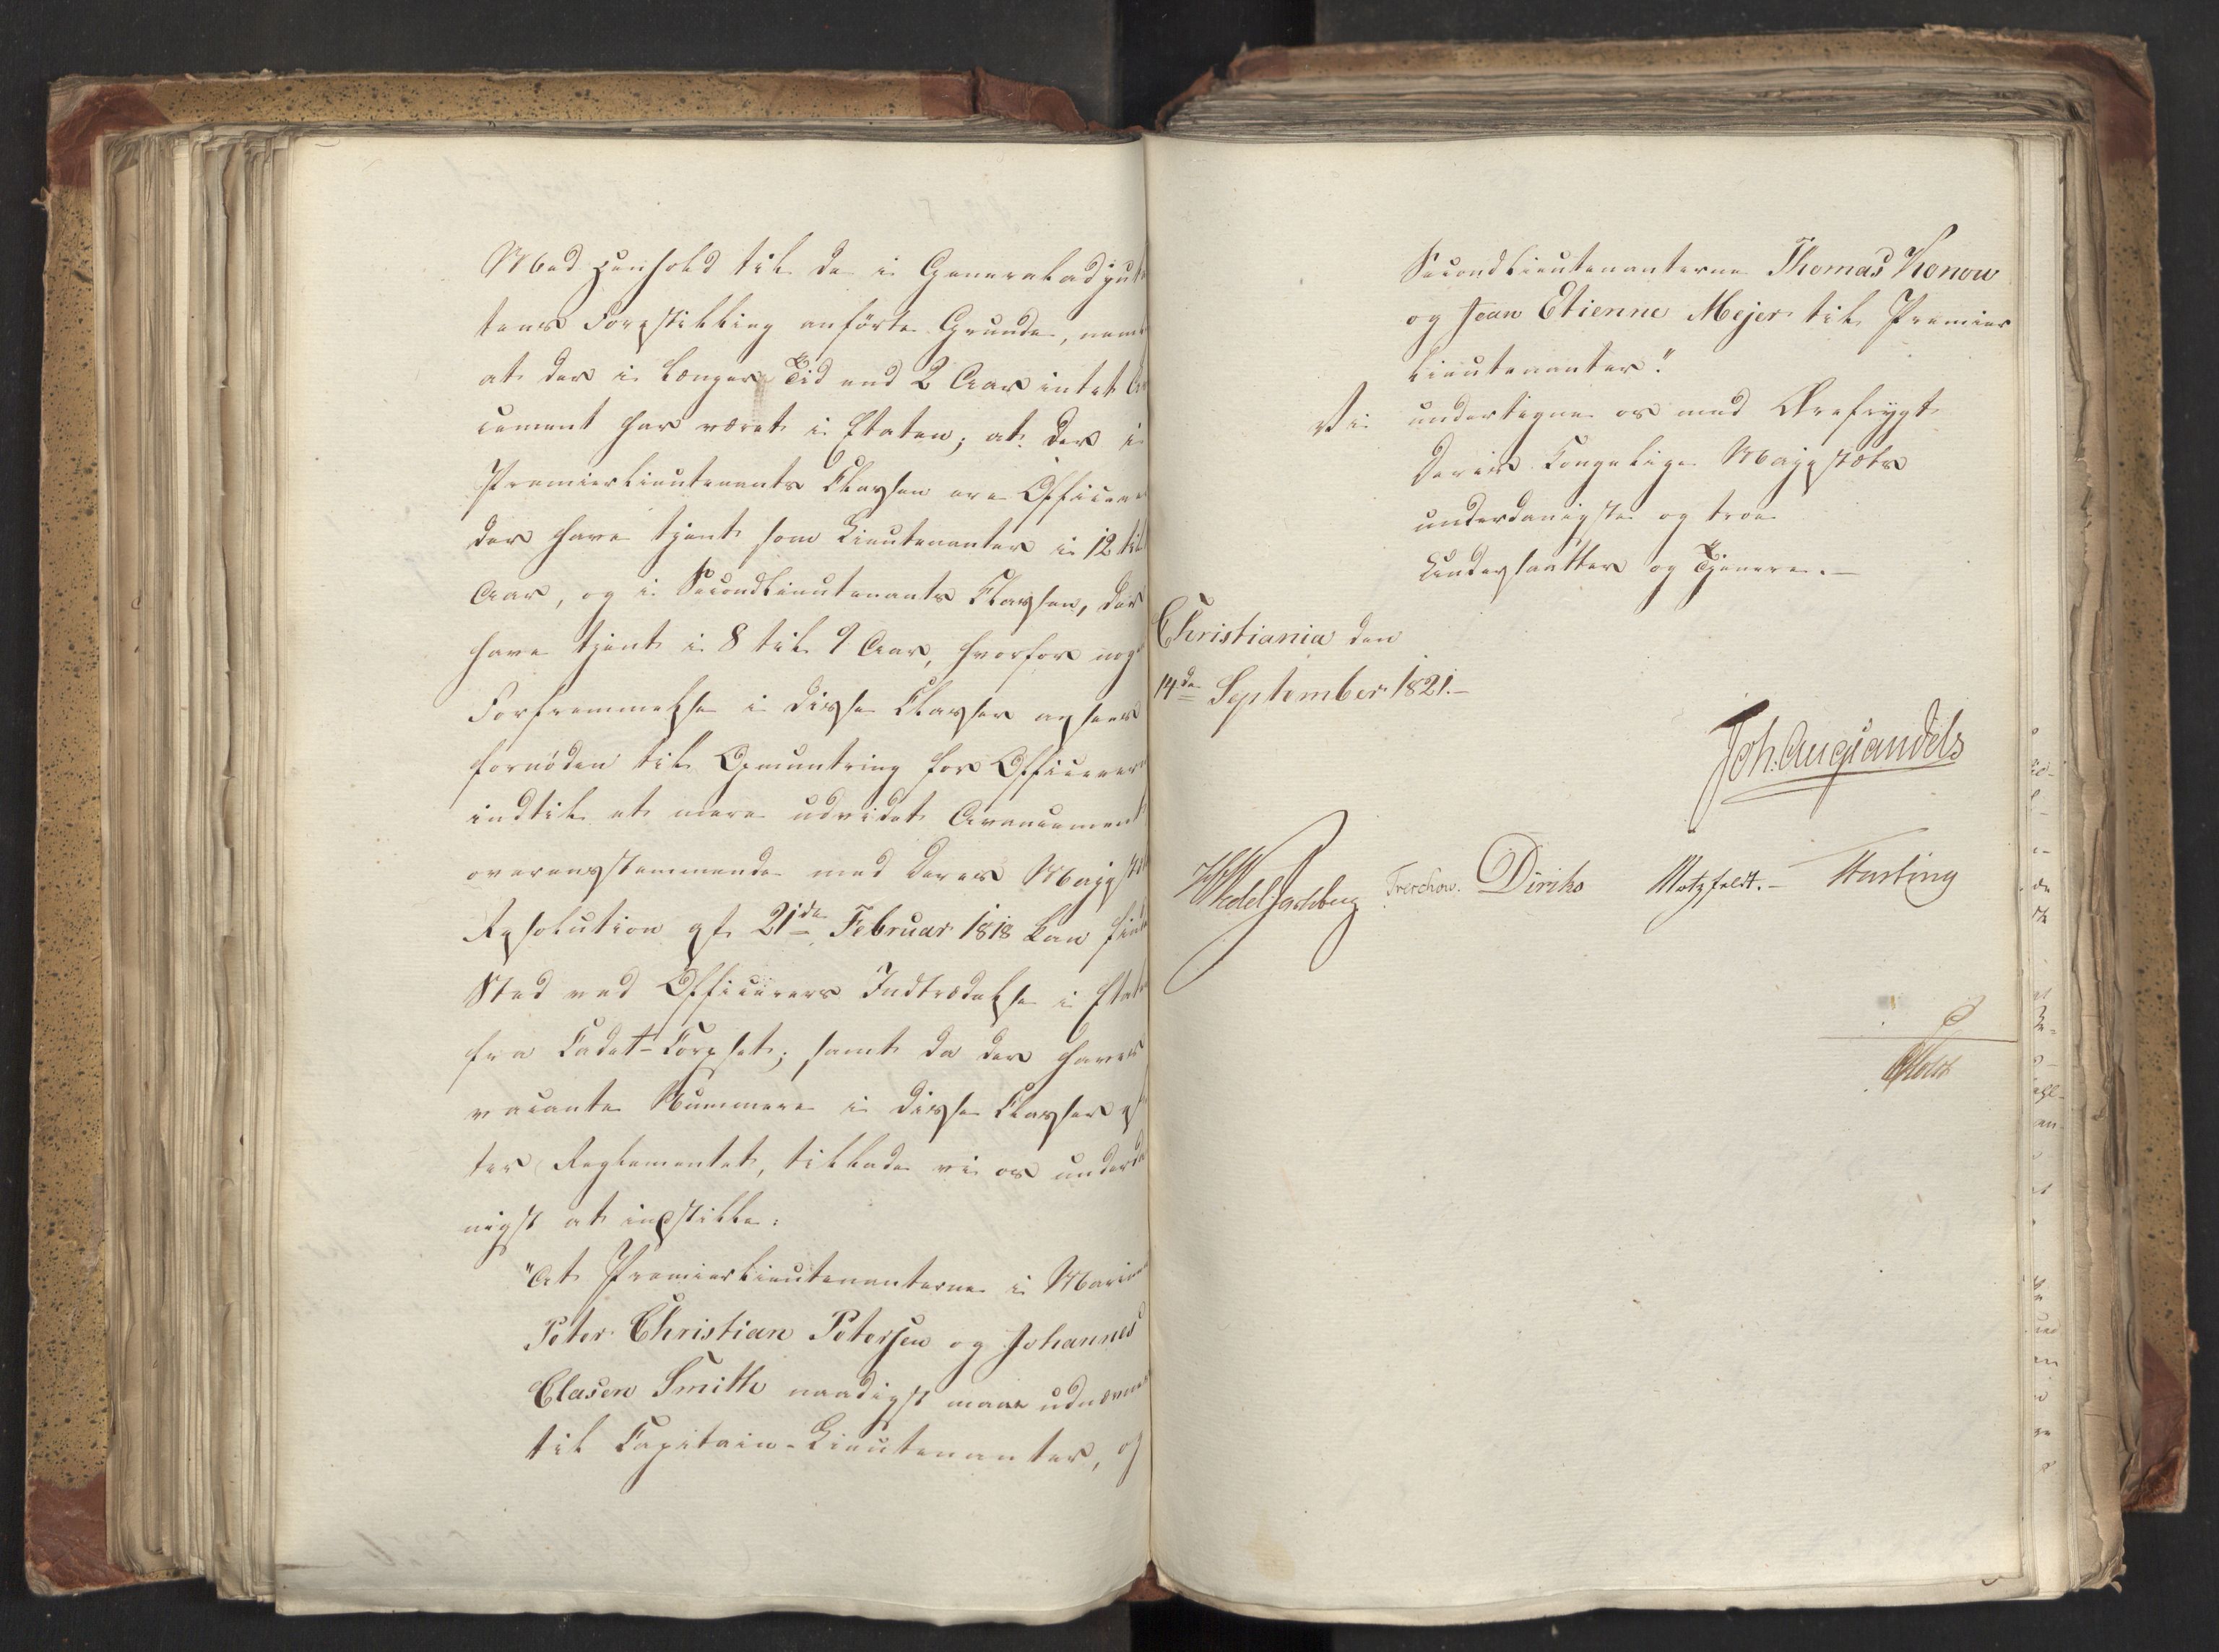 Med Henhold til de i Generaladjut
tens Forestilling anførte Grunde, neml
at der i længere Tid end 2 Aar intet A
cement har været i Etaten; at der i
Premierlieutenants Classen ere Officere
der have tjent som Lieutenanter i 12 til
Aar, og i Secondlieutenants Classen, der
have tjent i 8 til 9 Aar, hvorfor nog
Forfremmelse i disse Classer ansees
fornøden til Opmuntring for Officerer
indtil et mere udvidet Avancement
overensstemmende med Deres Majest
Resolution af 21de Februar 1818 kan find
Sted ved Officerers Indtrædelse i Etat
fra Cadet-Corpset; samt da der haves
vacante Nummere i disse Classer ef
ter Reglementet, tillade vi os underda
nigst at indstille:
"At Premierlieutenanterne i Marine
Peter Christian Petersen og Johannes
Clasen Smith naadigst maae udnævnes
til Capitain-Lieutenanter, og
Secondlieutenanterne Thomas Konow
og Jean Etienne Mejer til Premier
lieutenanter."
Vi undertegne os med Ærefrygt
Deres Kongelige Majestæts
underdanigste og troe
Undersaatter og Tjenere.-
Christiania den
14de September 1821.-
Joh. Aug Sandels
HWedel Jarlsberg Treschow. Diriks Motzfeldt.- Fasting
Holst